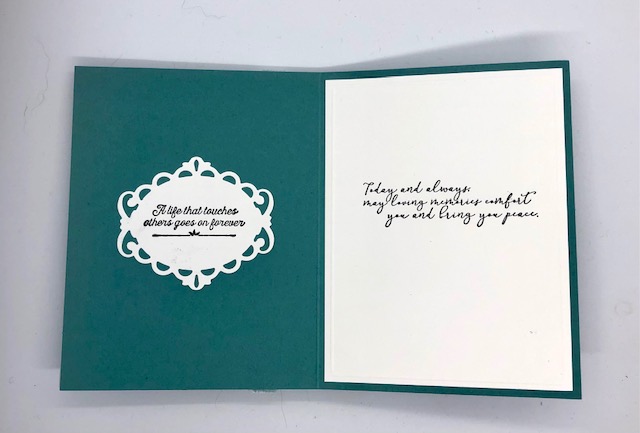 A life that touches
others goes on forever
Today and always,
may loving memories comfort
you and bring you peace.